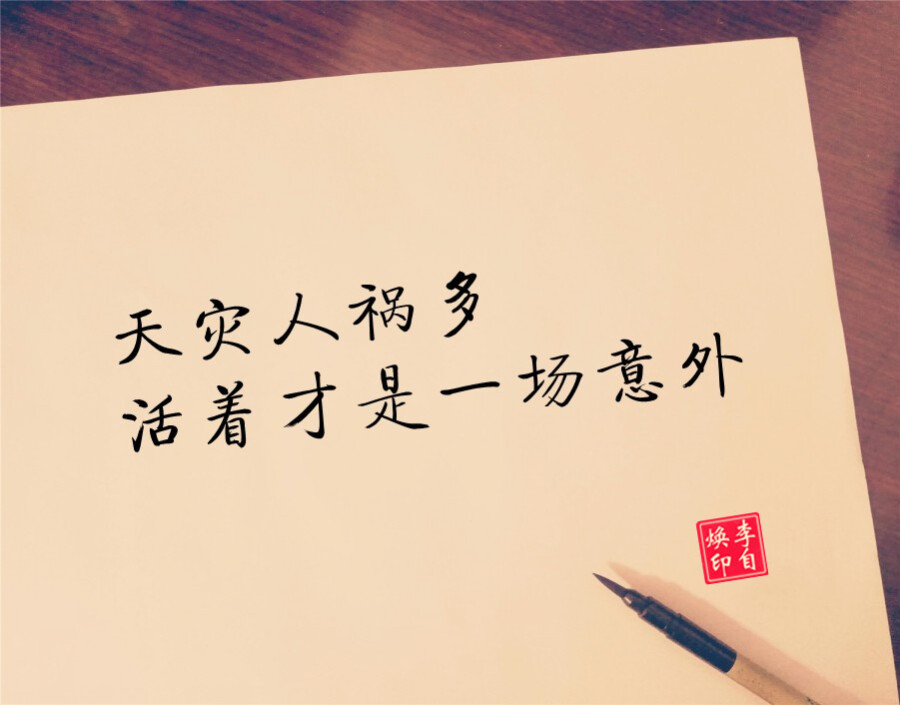 天灾人祸多
活着才是一场意外
李自
焕印